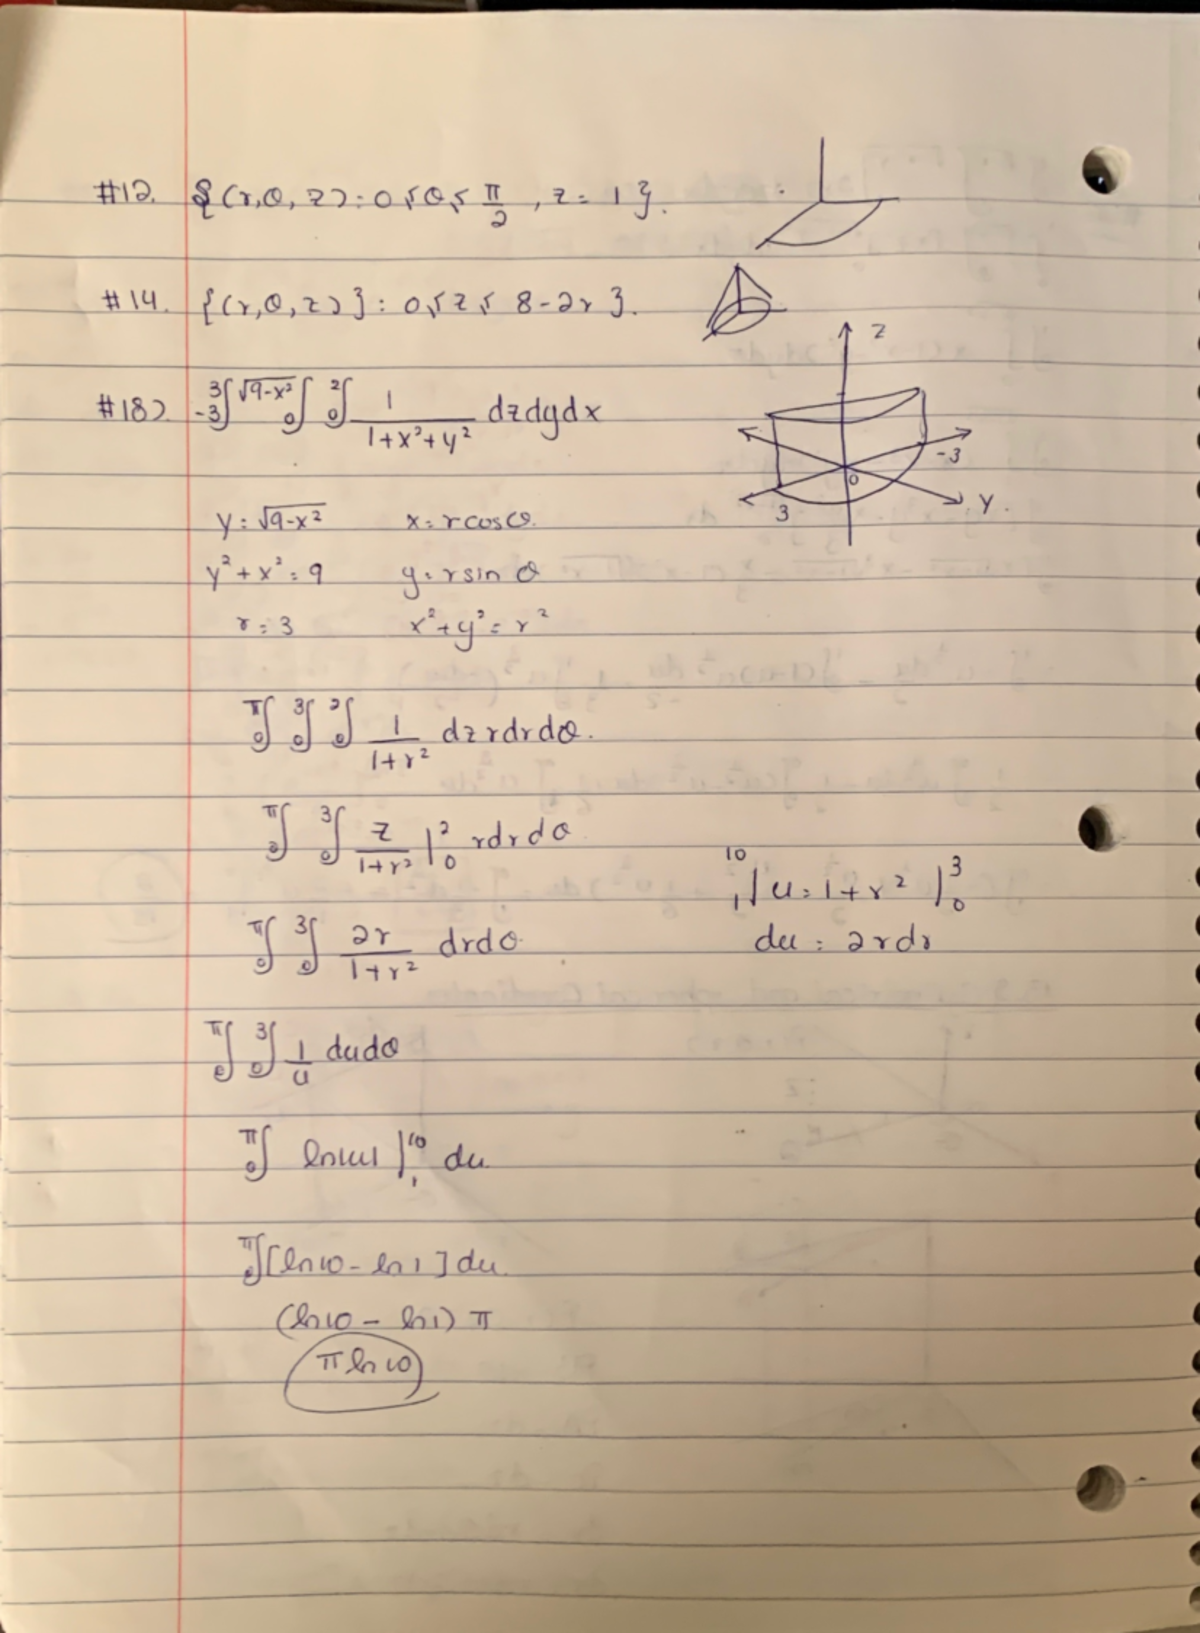 #12. {(r,θ,z): 0≤θ≤ π/2 , z = 1}.
#14. {(r,θ,z)}: 0≤z≤ 8-2r}.
z
#18) ₋₃³∫ ₀^√(9-x²)∫ ₀²∫ 1/(1+x²+y²) dzdydx
-3
0
3
y.
y = √(9-x²) x = rcosθ.
y²+x² = 9 y = rsin θ
r = 3 x²+y² = r²
₀^π∫ ₀³∫ ₀²∫ 1/(1+r²) dz rdrdθ.
₀^π∫ ₀³∫ z/(1+r²) |₀² rdrdθ
₁¹⁰| u = 1+r² |₀³
₀^π∫ ₀³∫ 2r/(1+r²) drdθ du = 2rdr
₀^π∫ ₀³∫ 1/u dudθ
₀^π∫ ln|u| |₁¹⁰ du
₀^π∫ [ln10 - ln1] du
(ln10 - ln1) π
π ln10